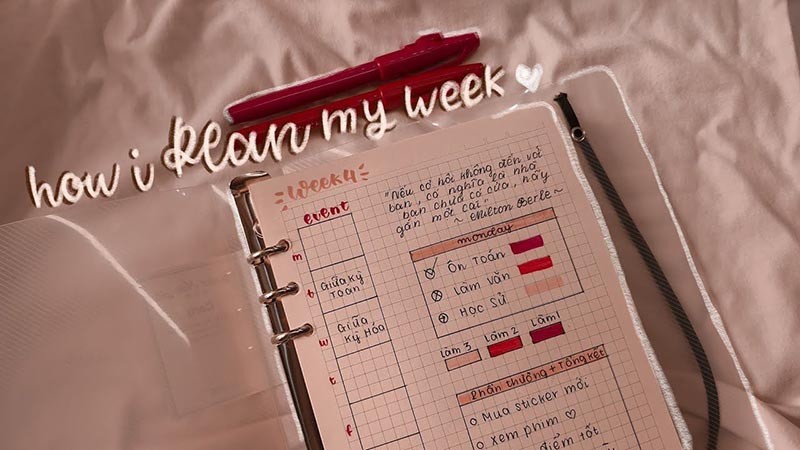 how i plan my week ♡
Week 4
event
m
t
Giữa kỳ
Toán
w
Giữa
kỳ Hóa
t
f
"Nếu cơ hội không đến với
bạn, có nghĩa là nhà
bạn chưa có cửa, hãy
gắn một cái"
~ Milton Berle ~
monday
Ôn Toán
Làm văn
Học Sử
Làm 3
Làm 2
Làm 1
Phần thưởng + Tổng kết
Mua sticker mới
Xem phim ♡
điểm tốt